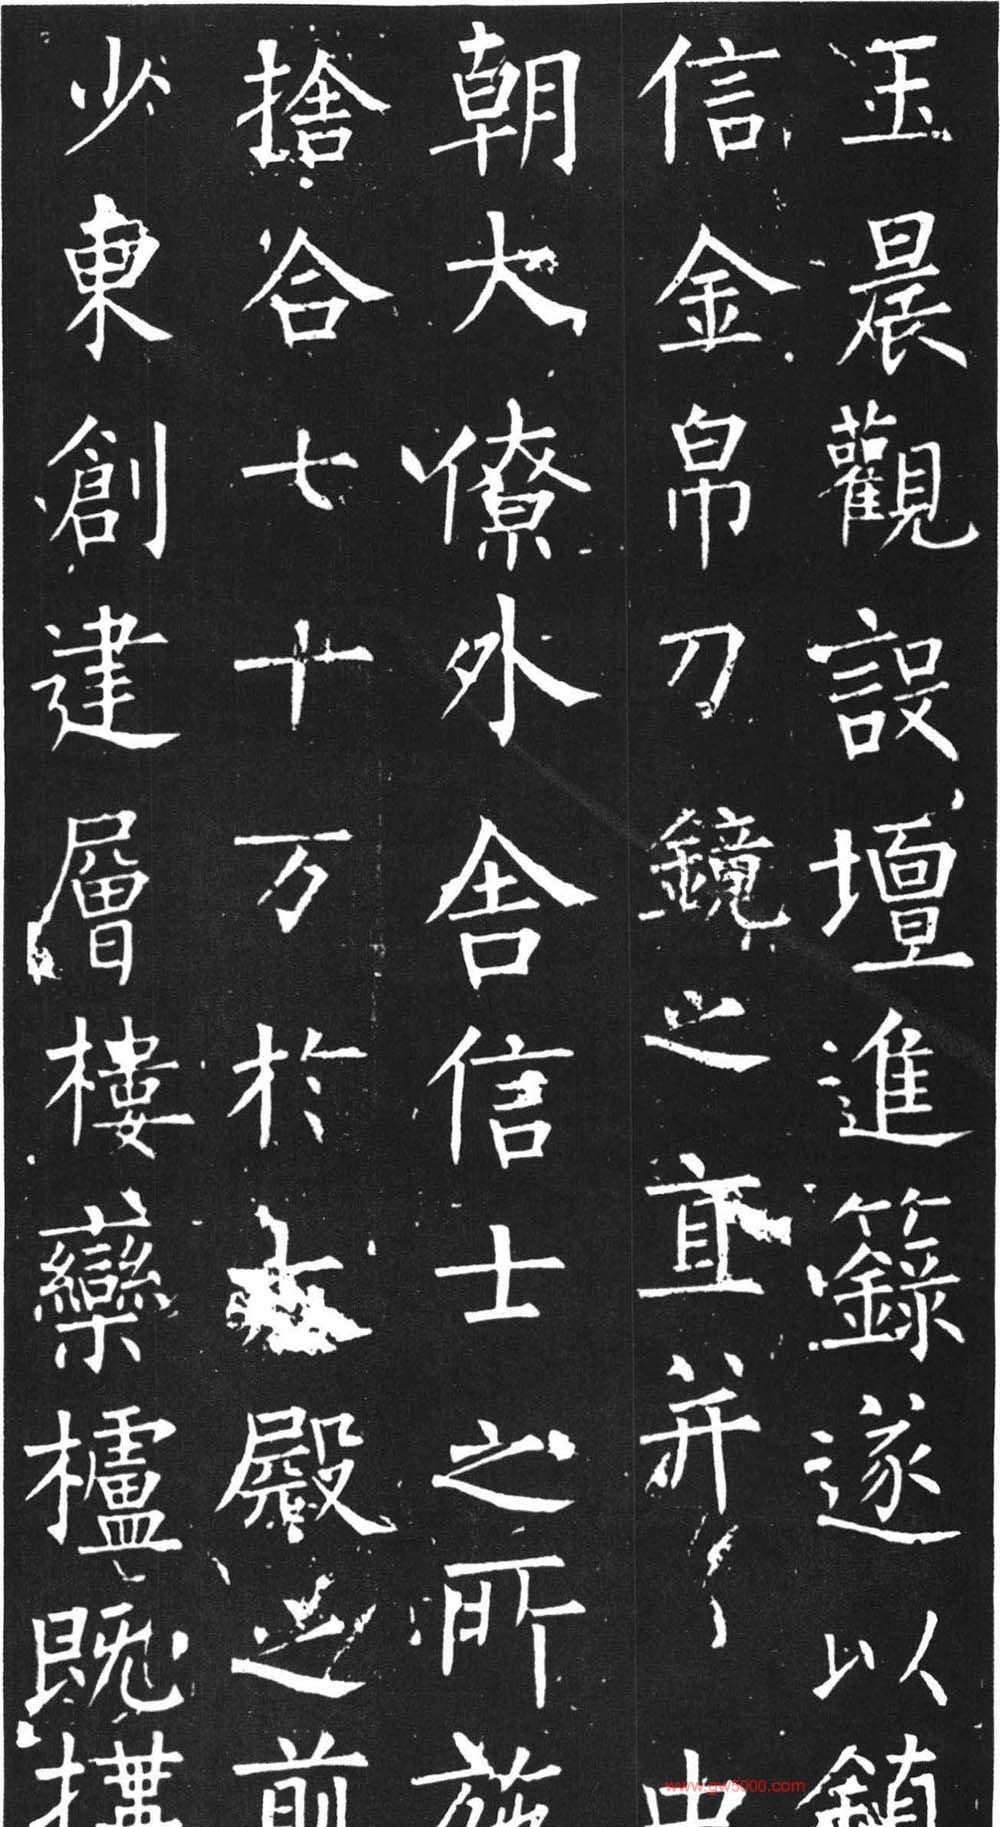 玉晨觀設壇進籙遂以鎮
信金帛刀鏡之直并
朝大僚外舍信士之所施
捨合七十万於大殿之前
少東創建層樓欒櫨既構
www.gw5000.com